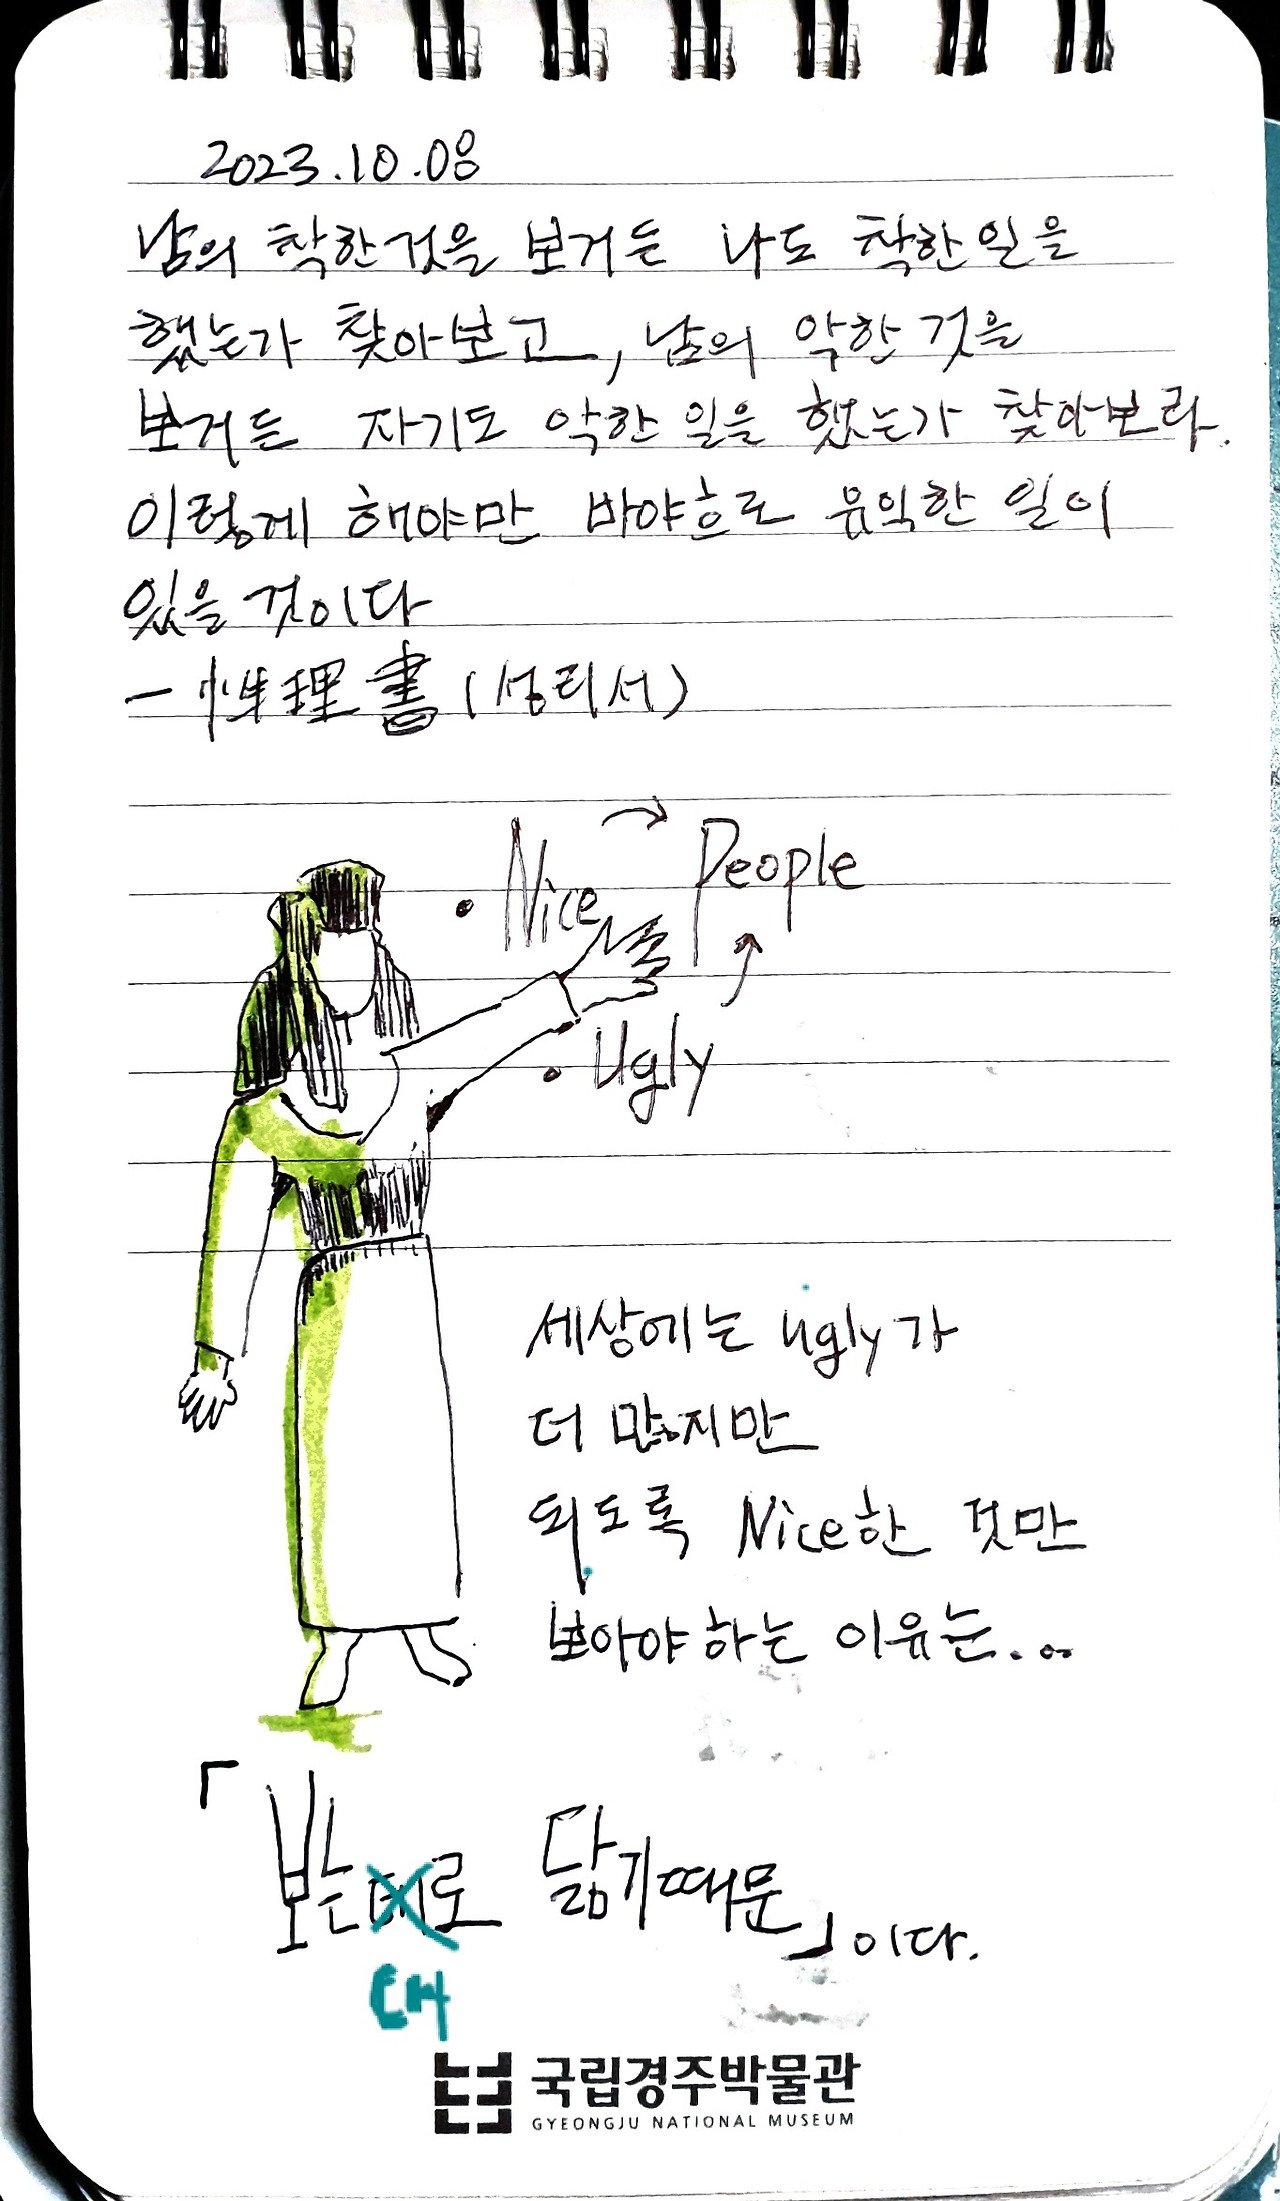 2023.10.08
남의 착한것을 보거든 나도 착한일을
했는가 찾아보고, 남의 악한 것을
보거든 자기도 악한 일을 했는가 찾아보라.
이렇게 해야만 바야흐로 유익한 일이
있을 것이다
- 性理書 (성리서)
• Nice → People
• Ugly ↗
세상에는 ugly가
더 많지만
되도록 Nice한 것만
보아야하는 이유는...
「보는데로 닮기때문」이다.
대
국립경주박물관
GYEONGJU NATIONAL MUSEUM